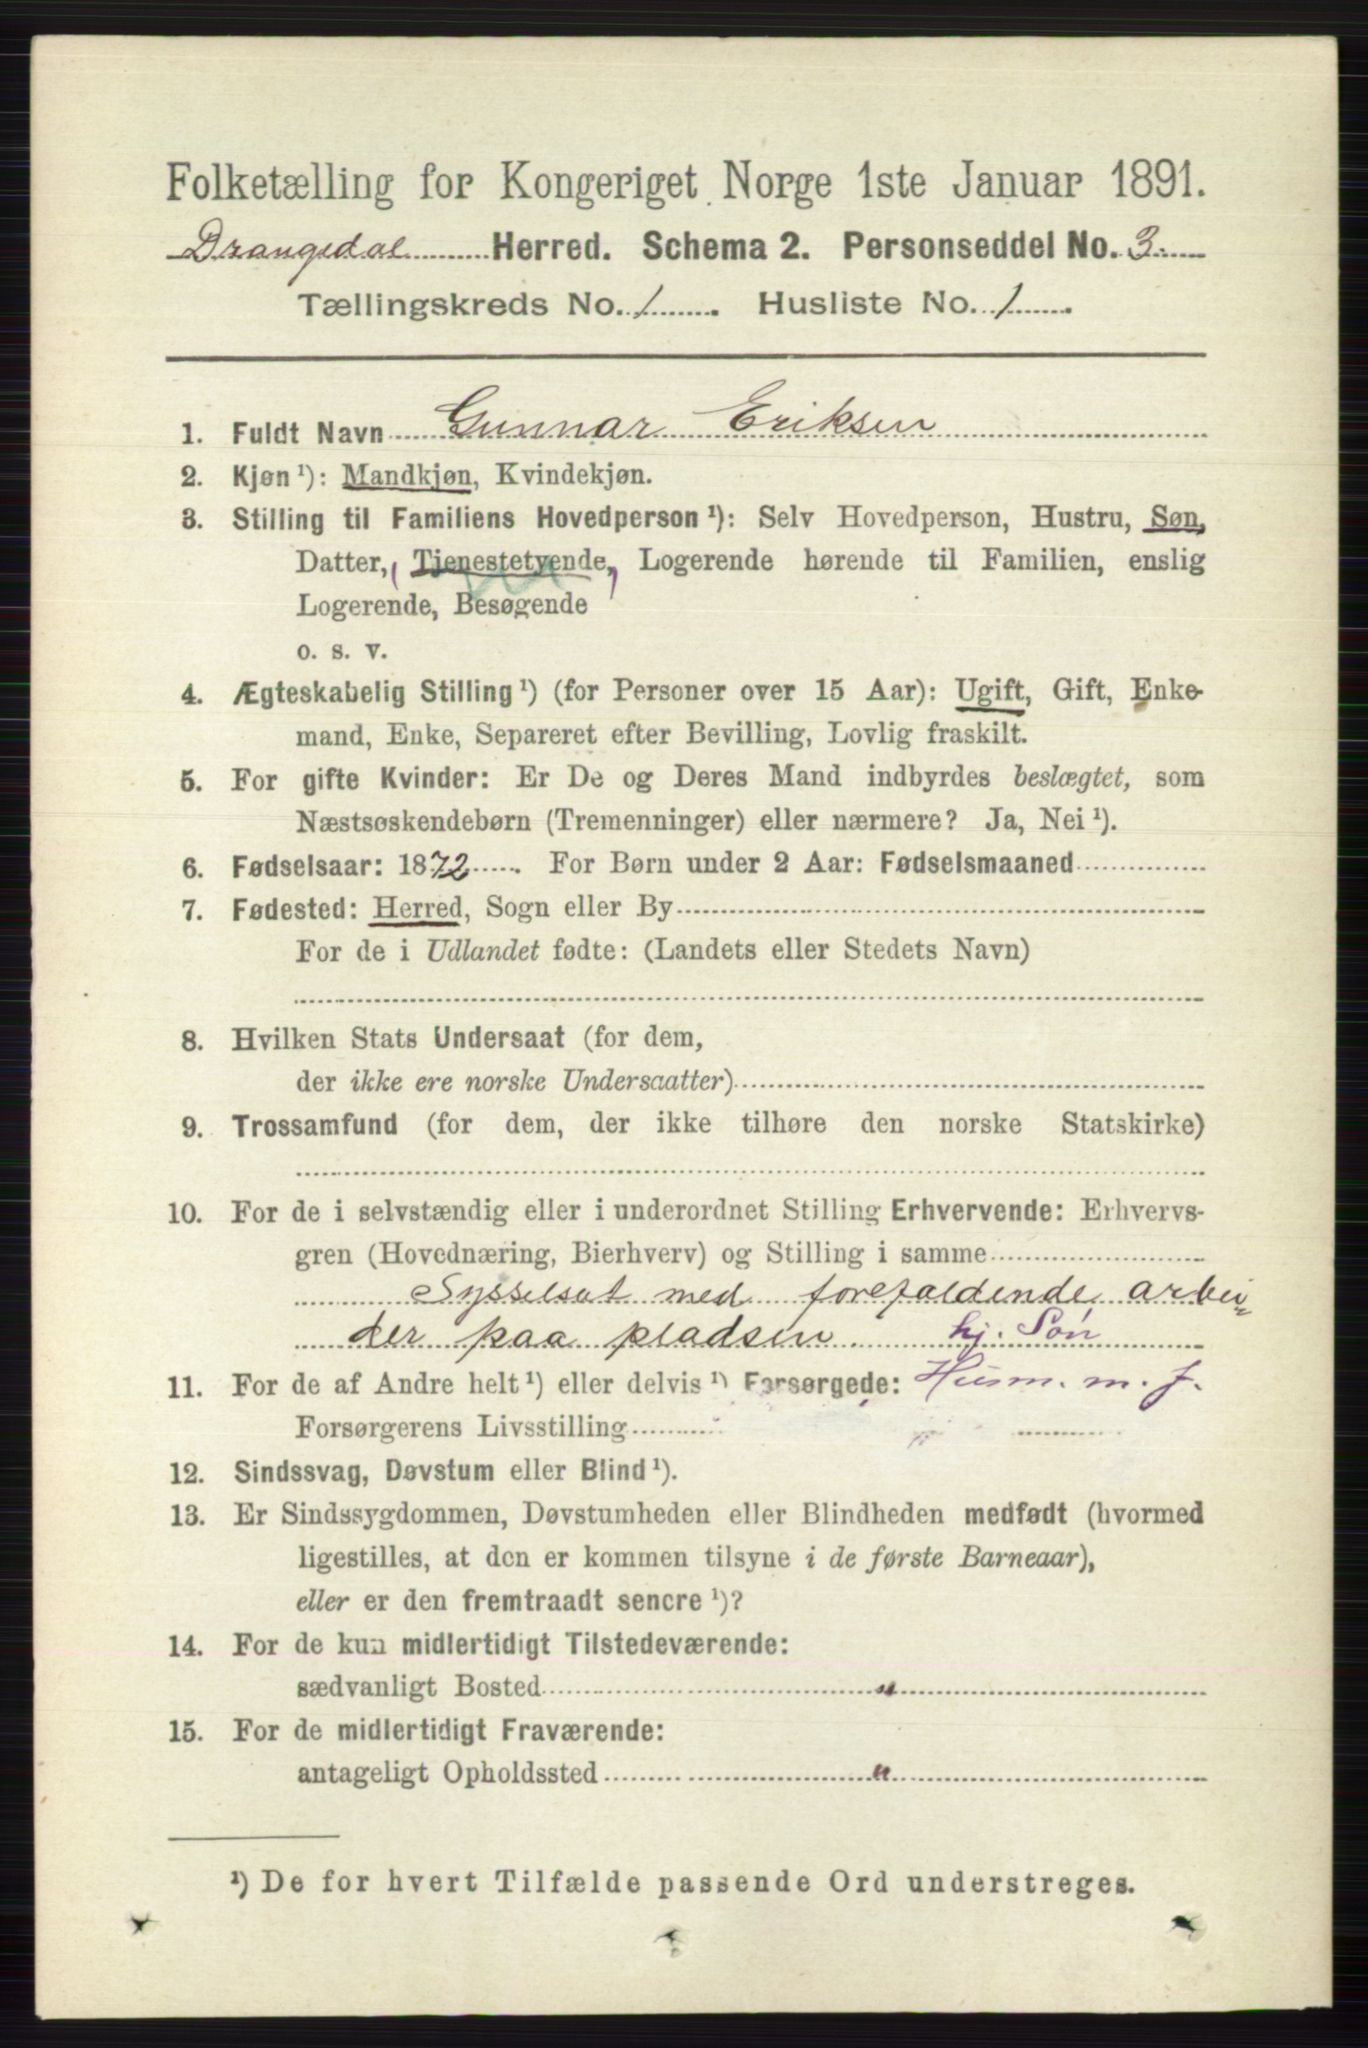 Folketælling for Kongeriget Norge 1ste Januar 1891.
Drangedal Herred. Schema 2. Personseddel No. 3.
Tællingskreds No. 1. Husliste No. 1.
1. Fuldt Navn Gunnar Eriksen
2. Kjøn¹): Mandkjøn, Kvindekjøn.
3. Stilling til Familiens Hovedperson¹): Selv Hovedperson, Hustru, Søn,
Datter, (Tjenestetyende,) Logerende hørende til Familien, enslig
Logerende, Besøgende
o. s. v.
4. Ægteskabelig Stilling¹) (for Personer over 15 Aar): Ugift, Gift, Enke-
mand, Enke, Separeret efter Bevilling, Lovlig fraskilt.
5. For gifte Kvinder: Er De og Deres Mand indbyrdes beslægtet, som
Næstsøskendebørn (Tremenninger) eller nærmere? Ja, Nei¹).
6. Fødselsaar: 1872. For Børn under 2 Aar: Fødselsmaaned
7. Fødested: Herred, Sogn eller By
For de i Udlandet fødte: (Landets eller Stedets Navn)
8. Hvilken Stats Undersaat (for dem,
der ikke ere norske Undersaatter)
9. Trossamfund (for dem, der ikke tilhøre den norske Statskirke)
10. For de i selvstændig eller i underordnet Stilling Erhvervende: Erhvervs-
gren (Hovednæring, Bierhverv) og Stilling i samme
Sysselsat med forefaldende arbei=
der paa pladsen. hj. Søn
11. For de af Andre helt¹) eller delvis¹) Forsørgede: Husm. m. J.
Forsørgerens Livsstilling
12. Sindssvag, Døvstum eller Blind¹).
13. Er Sindssygdommen, Døvstumheden eller Blindheden medfødt (hvormed
ligestilles, at den er kommen tilsyne i de første Barneaar),
eller er den fremtraadt senere¹)?
14. For de kun midlertidigt Tilstedeværende:
sædvanligt Bosted "
15. For de midlertidigt Fraværende:
antageligt Opholdssted "
¹) De for hvert Tilfælde passende Ord understreges.